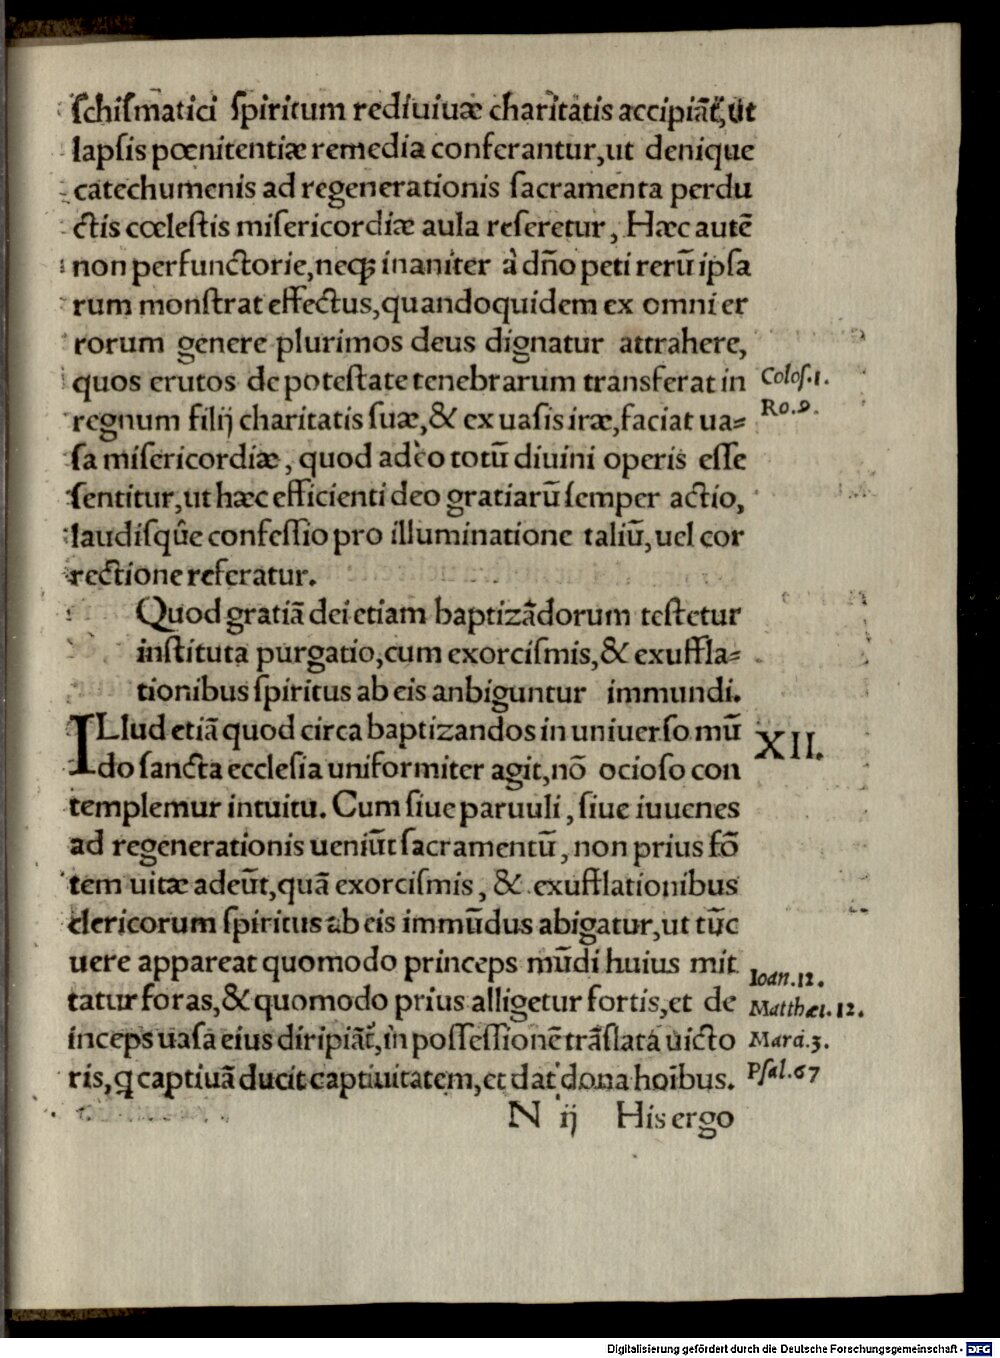 ſchiſmatici ſpiritum rediuiuæ charitatis accipiāt, ut
lapſis pœnitentiæ remedia conferantur, ut denique
catechumenis ad regenerationis ſacramenta perdu
ctis cœleſtis miſericordiæ aula reſeretur, Hæc autē
non perfunctorie, neq; inaniter à dño peti rerū ipſa
rum monſtrat effectus, quandoquidem ex omni er
rorum genere plurimos deus dignatur attrahere,
quos erutos de poteſtate tenebrarum transferat in Coloſ.1.
regnum filij charitatis ſuæ, & ex uaſis iræ, faciat ua= Ro.9.
ſa miſericordiæ, quod adeò totū diuini operis eſſe
ſentitur, ut hæc efficienti deo gratiarū ſemper actio,
laudiſq̂ue confeſſio pro illuminatione taliū, uel cor
rectione referatur.
Quod gratiā dei etiam baptizādorum teſtetur
inſtituta purgatio, cum exorciſmis, & exuffla=
tionibus ſpiritus ab eis anbiguntur immundi.
ILlud etiā quod circa baptizandos in uniuerſo mū XII.
do ſancta eccleſia uniformiter agit, nō ocioſo con
templemur intuitu. Cum ſiue paruuli, ſiue iuuenes
ad regenerationis ueniūt ſacramentū, non prius fō
tem uitæ adeūt, quā exorciſmis, & exufflationibus
clericorum ſpiritus ab eis immūdus abigatur, ut tūc
uere appareat quomodo princeps mūdi huius mit Ioan.12.
tatur foras, & quomodo prius alligetur fortis, et de Matthæi.12.
inceps uaſa eius diripiāt̉, in poſſeſſionē trāſlata uicto Marci.3.
ris, q captiuā ducit captiuitatem, et dat dona hoībus. Pſal.67
N ij His ergo
Digitalisierung gefördert durch die Deutsche Forschungsgemeinschaft - DFG